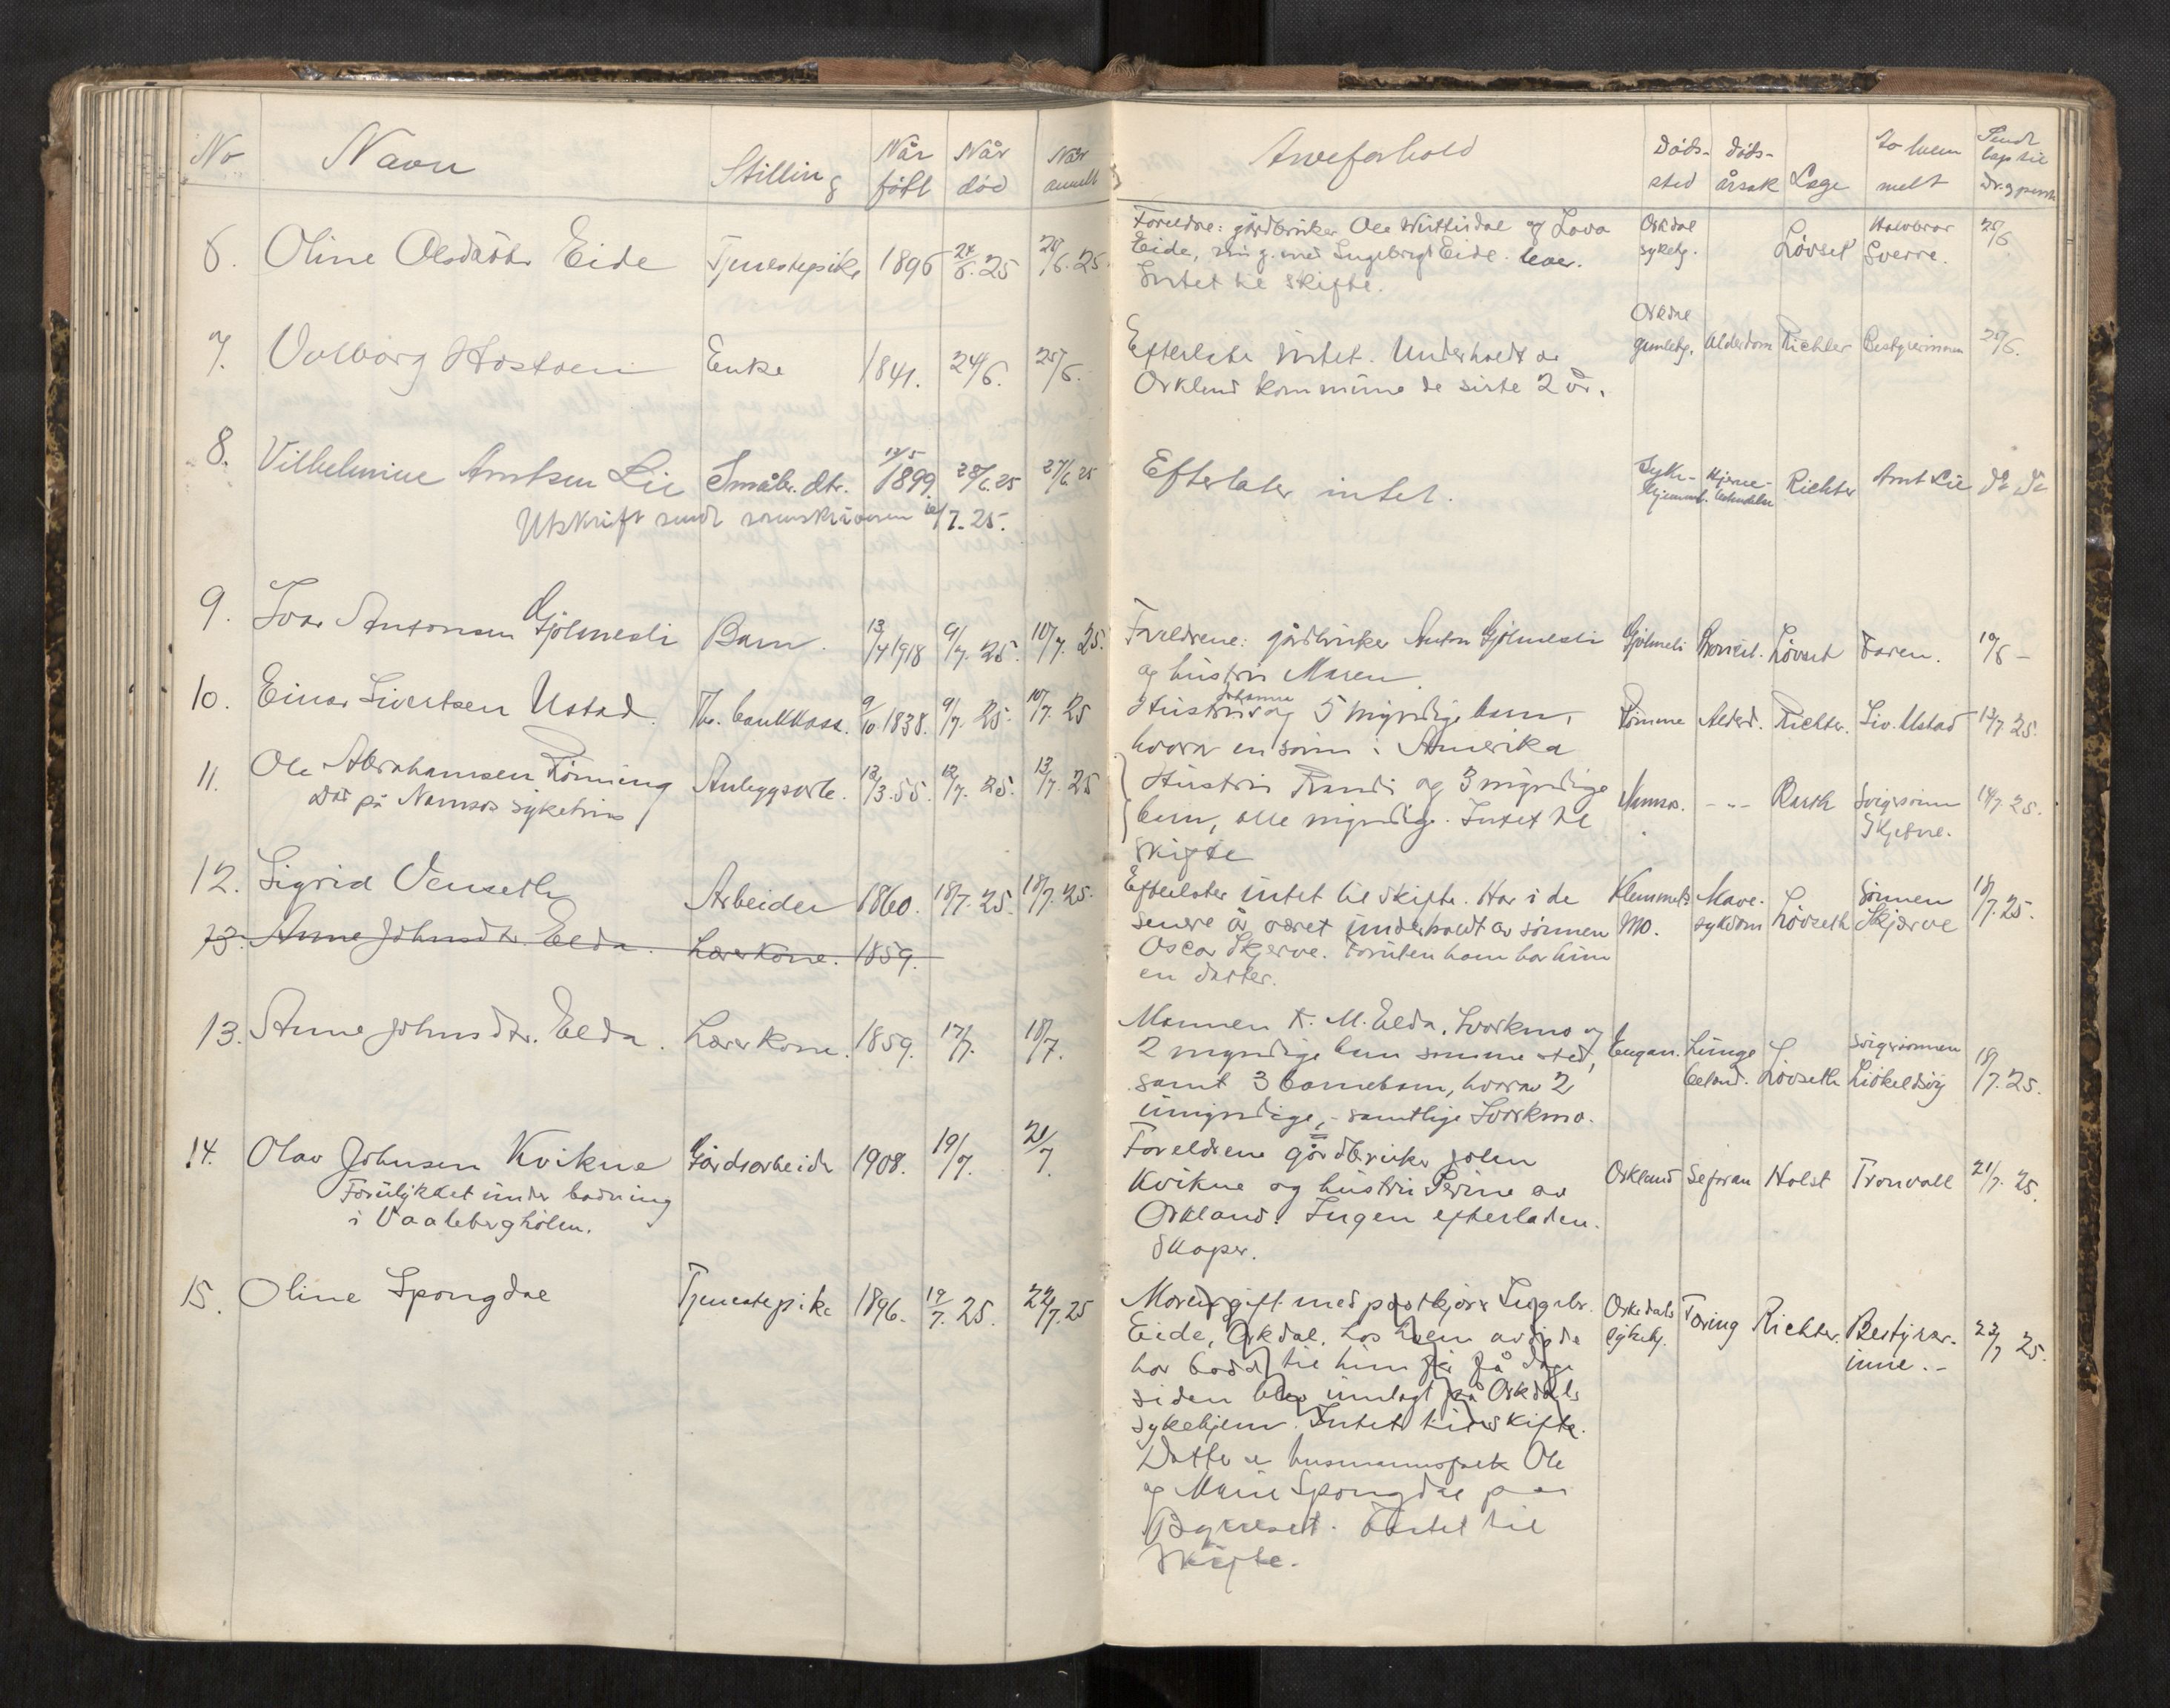 No Navn Stilling Når født Når død Når anmelt Arveforhold Døds-sted døds-årsak Læge Av hvem melt
6. Oline Olsdatter Eide Tjenestepike 1896 24/6. 25 26/6. 25 Foreldre: gårdbruker Ole og Lava Orkdal sykehj. Løvset Halvbror Sverre. 25/6
Eide, nu g. med Ingebrigt Eide. lever.
Intet til skifte.
7. Volborg Hostoen Enke 1841. 24/6. 25/6. Efterlater intet. Underholdt av Orkdal gamlehj. Alderdom Richter Bestyrerinnen 25/6.
Orkland kommune de siste 2 år.
8. Vilhelmine Arntsen Lie Småbr. dtr. 12/5 1899. 28/6. 25 27/6 25 Efterlater intet. Syke-hjemmet. Hjerne-betendelse Richter Arnt Lie do do
Utskrift sendt sorenskriveren 10/7. 25.
9. Ivar Antonsen Gjølmesli Barn. 13/4 1918 9/7. 25. 10/7. 25. Foreldrene: gårdbruker Anton Gjølmesli Gjølmesli Løvset Faren. 10/8 -
og hustru Maren.
10. Einar Sivertsen Ustad. Fhv. bankkass. 9/10. 1838. 9/7. 25. 10/7. 25 Hustru Johanna og 5 myndige barn, Tømme Alderd. Richter. Siv. Ustad 13/7. 25.
hvorav en sønn i Amerika
11. Ole Abrahamsen Rønning Anleggsarb. 12/3. 55. 12/7. 25. 13/7. 25 Hustru Randi og 3 myndige Namsos. -"- Svigersønn Skjetne. 14/7. 25.
død på Namsos sykehus barn, alle myndige. Intet til
skifte
12. Sigrid Venseth Arbeider 1860. 18/7. 25. 18/7. 25. Efterlater intet til skifte. Har i de Klemmets Mave- Løvseth Sønnen 18/7. 25.
senere år været underholdt av sønnen Mo. sykdom Skjærve
Oscar Skjerve. Foruten ham har hun
en datter.
13. Anne Johnsdtr. Elda. Lærerkone. 1859.
13. Anne Johnsdtr. Elda. Lærerkone. 1859. 17/7. 18/7. Mannen K. M. Elda, Svorkmo og
2 myndige barn samme sted, Engan. Lunge Løvseth Svigersønnen 18/7. 25.
samt 3 barnebarn, hvorav 2 betend.
umyndige, - samtlige Svorkmo.
14. Olav Johnsen Kvikne Gårdsarbeider 1908. 19/7. 21/7. Foreldrene gårdbruker John
Forulykket under badning Kvikne og hustru Perine av Orkland Holst Tronvoll 21/7. 25.
i Vaalebergholen. Orkland. Ingen efterladen-
skaper.
15. Oline Spongdal Tjenestepike 1896. 19/7. 25. 22/7. 25 Moren gift med postkjører Ingebr. Orkedals Tæring Richter. Bestyrer- 22/7 25.
Eide, Orkdal, hos hvem avdøde sykehj. inne. -
har bodd til hun for få dage
siden blev innlagt på Orkdals
sykehjem. Intet til skifte.
Datter av husmannsfolk Ole
og Marie Spongdal på
Byneset. Intet til
skifte.